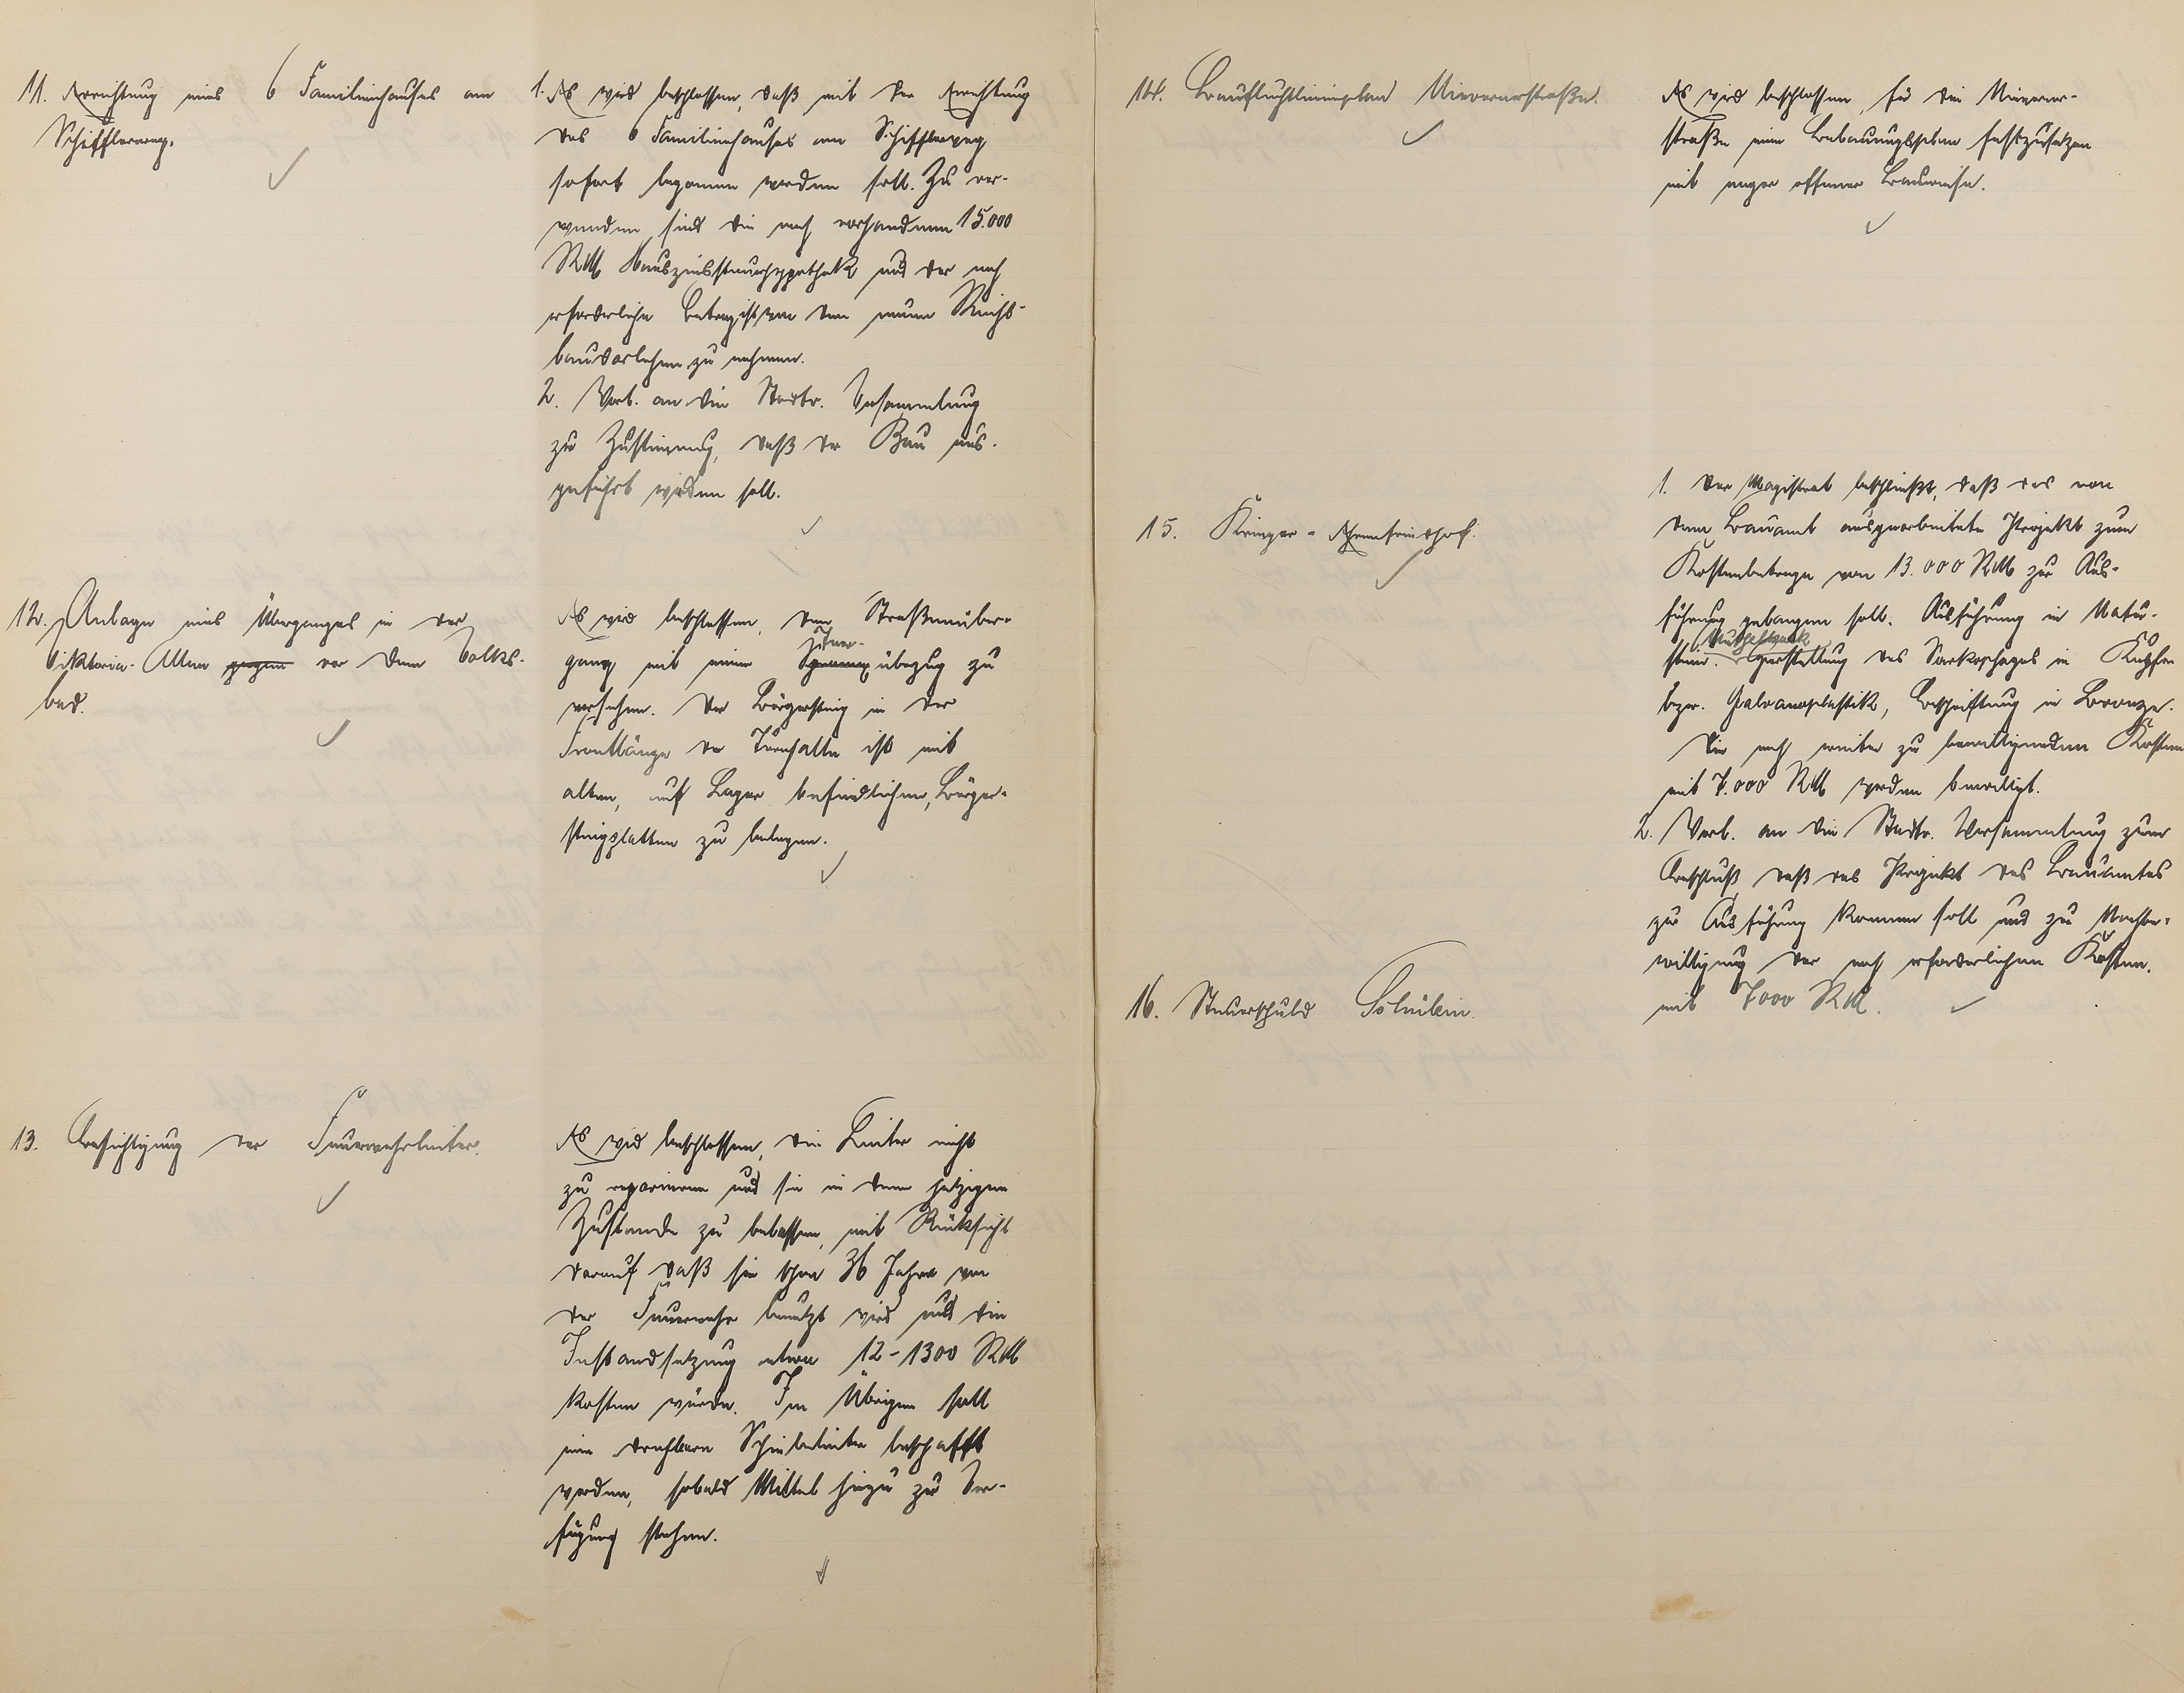 11. Errichtung eines 6 Familienhauses am
Schifflerweg.
1. Es wird beschlossen, daß mit der Errichtung
des 6 Familienhauses am Schifflerweg
sofort begonnen werden soll. Zu ver-
wenden sind die noch vorhandenen 15.000
RM Hauszinssteuerhypothek und der noch
erforderliche Betrag ist von dem neuen Reichs-
baudarlehen zu nehmen.
2. Vorl. an die Stadtv. Versammlung
zur Zustimmung, daß der Bau aus-
geführt werden soll.
12. Anlage eines Überganges in der
Viktoria-Allee gegen vor dem Volks-
bad.
Es wird beschlossen, den Straßenüber-
gang mit einem überzug zu
versehen. Der Bürgersteig in der
Frontlänge der Turnhalle ist mit
alten, auf Lager befindlichen, Bürger-
steigplatten zu belegen.
13. Besichtigung der Feuerwehrleiter.
Es wird beschlossen, die Leiter nicht
zu reparieren und sie in dem jetzigen
Zustande zu belassen, mit Rücksicht
darauf daß sie schon 36 Jahre von
der Feuerwehr benutzt wird und die
Instandsetzung etwa 12-1300 RM
kosten würde. Im Übrigen soll
eine drehbare Schiebeleiter beschafft
werden, sobald Mittel hierzu zur Ver-
fügung stehen.
14. Baufluchtlinienplan Nievenerstraße.
Es wird beschlossen, für die Nievener-
straße einen Bebauungsplan festzusetzen
mit enger offener Bauweise.
15. Krieger-Ehrenfriedhof.
1. Der Magistrat beschließt, daß das von
dem Bauamt ausgearbeitete Projekt zum
Kostenbetrage von 13.000 RM zur Aus-
führung gelangen soll. Ausführung in Natur-
Muschelkalk
stein. Herstellung des Sarkophages in Kupfer
bzw. Galvanoplastik, Beschriftung in Bronze.
Die noch weiter zu bewilligenden Kosten
mit 7.000 RM werden bewilligt.
2. Vorl. an die Stadtv. Versammlung zum
Beschluß daß das Projekt des Bauamtes
zur Ausführung kommen soll und zur Nachbe-
willigung der noch erforderlichen Kosten.
mit 7000 RM.
16. Steuerschuld